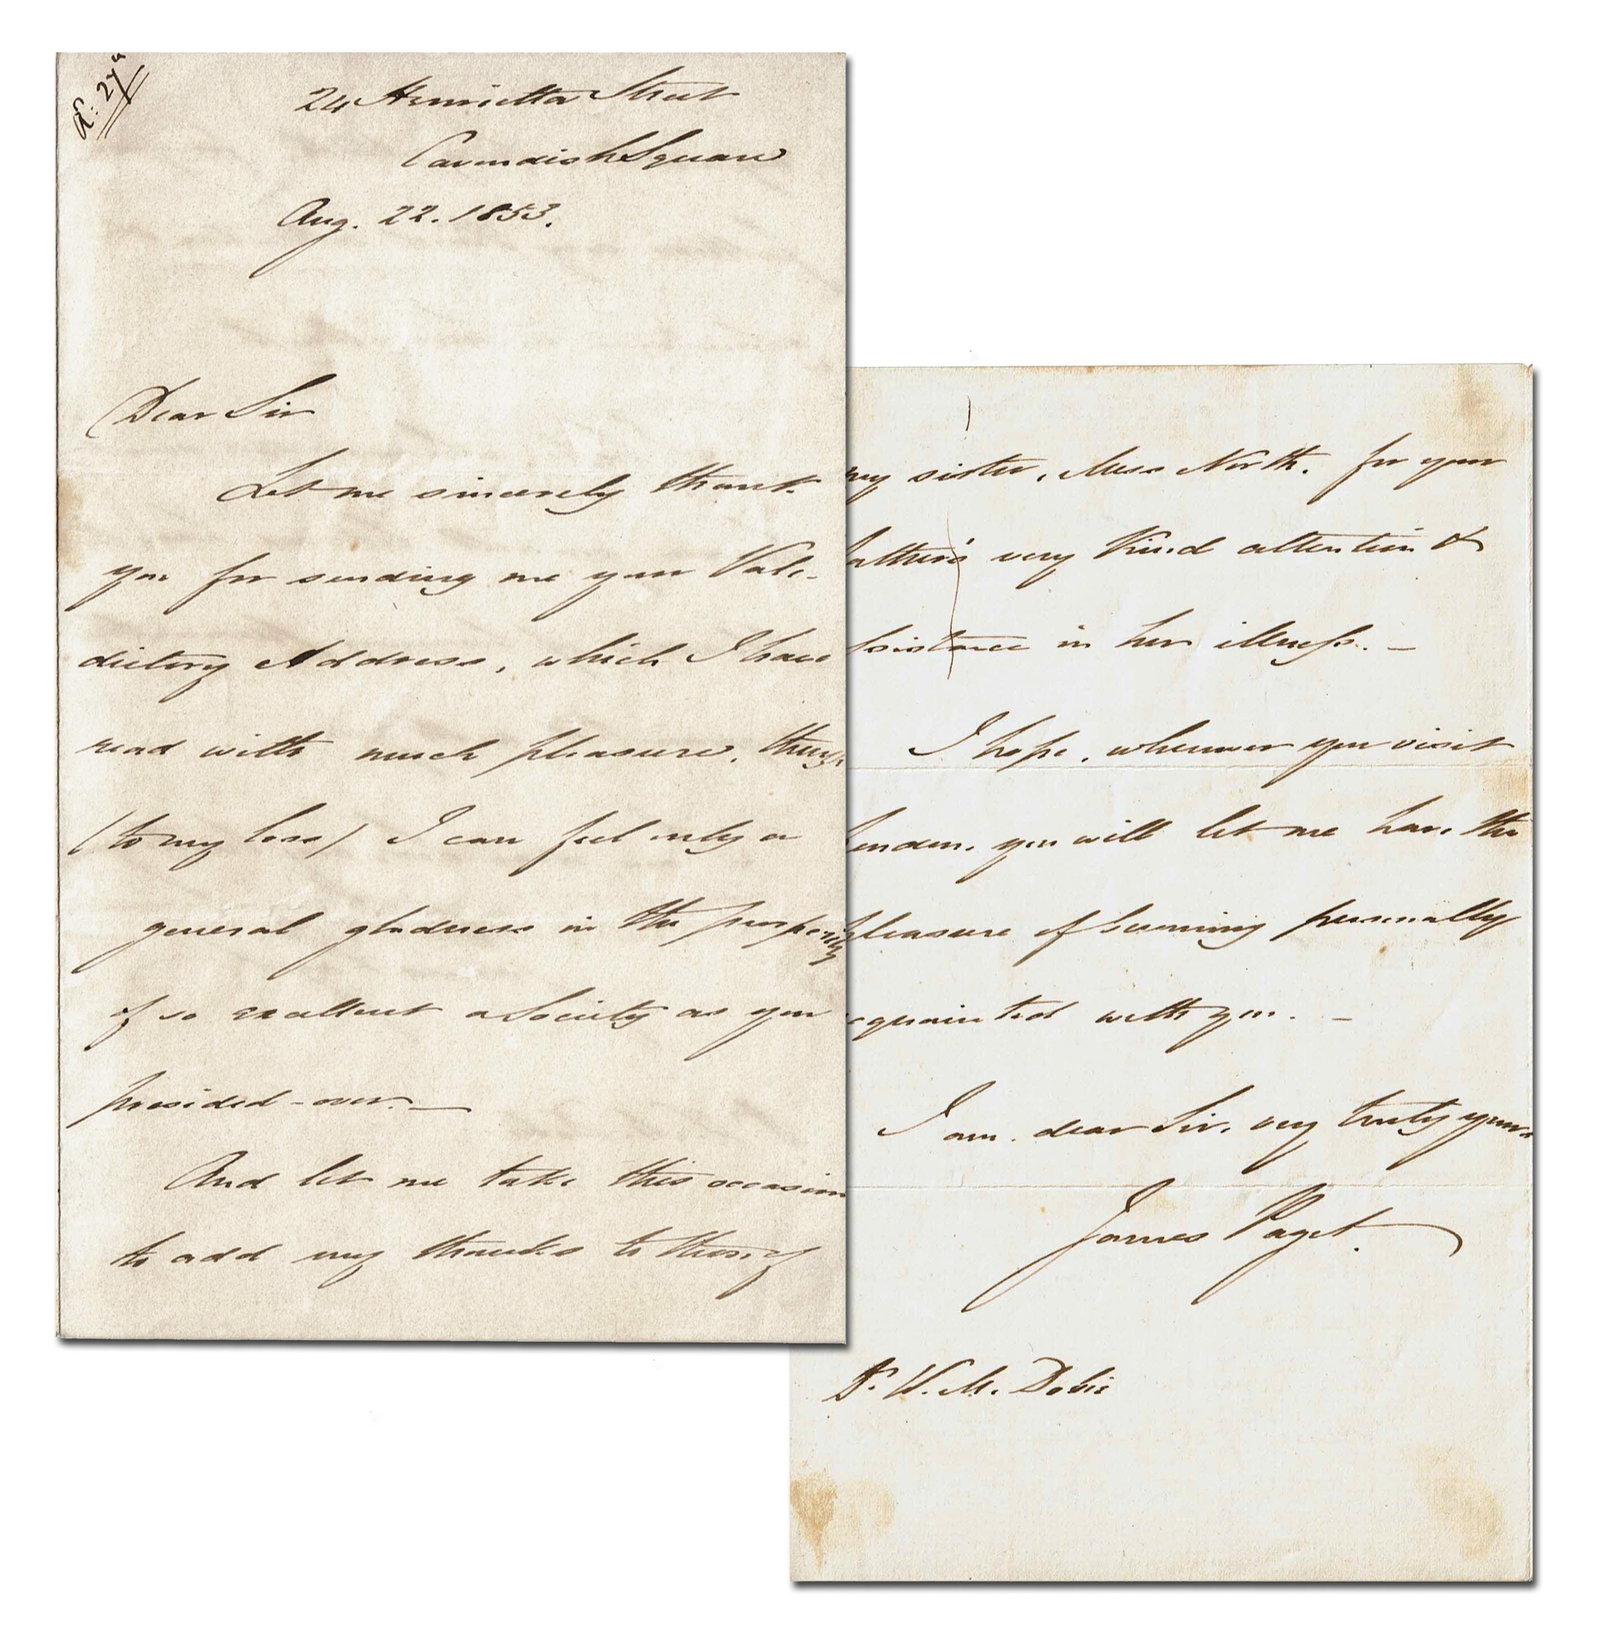 24 Henrietta Street
Cavendish Square
Aug. 22. 1853.
Dear Sir
Let me sincerely thank
you for sending me your Vale-
dictory Address, which I have
read with much pleasure, though
(to my loss) I can feel only a
general gladness in the prosperity
of so excellent a Society as you
presided-over. —
And let me take this occasion
to add my thanks to those of
my sister, Miss North. for your
father's very kind attention &
ssistance in her illness. —
I hope, whenever you visit
London, you will let me have the
pleasure of becoming personally
cquainted with you. —
I am. dear Sir, very truly yours
James Paget.
Dr. W. M. Dobie